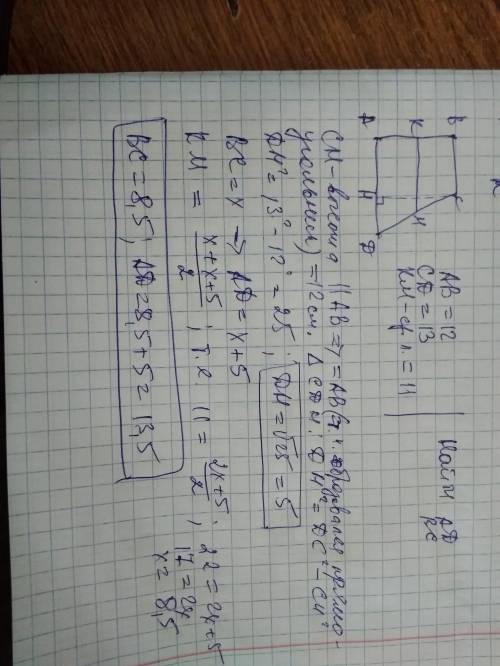 B C
K M
A H D
AB = 12
CD = 13
KM - ср. л. = 11
Найти AD
BC
CH - высота || AB => = AB (т.к. образовался прямо-
угольник) = 12 см. Δ CDH: DH² = DC² - CH²
DH² = 13² - 12² = 25; DH = √25 = 5
BC = x → AD = x + 5
KM = x + x + 5 / 2; т.е. 11 = 2x + 5 / 2; 22 = 2x + 5
17 = 2x
x = 8,5
BC = 8,5; AD = 8,5 + 5 = 13,5